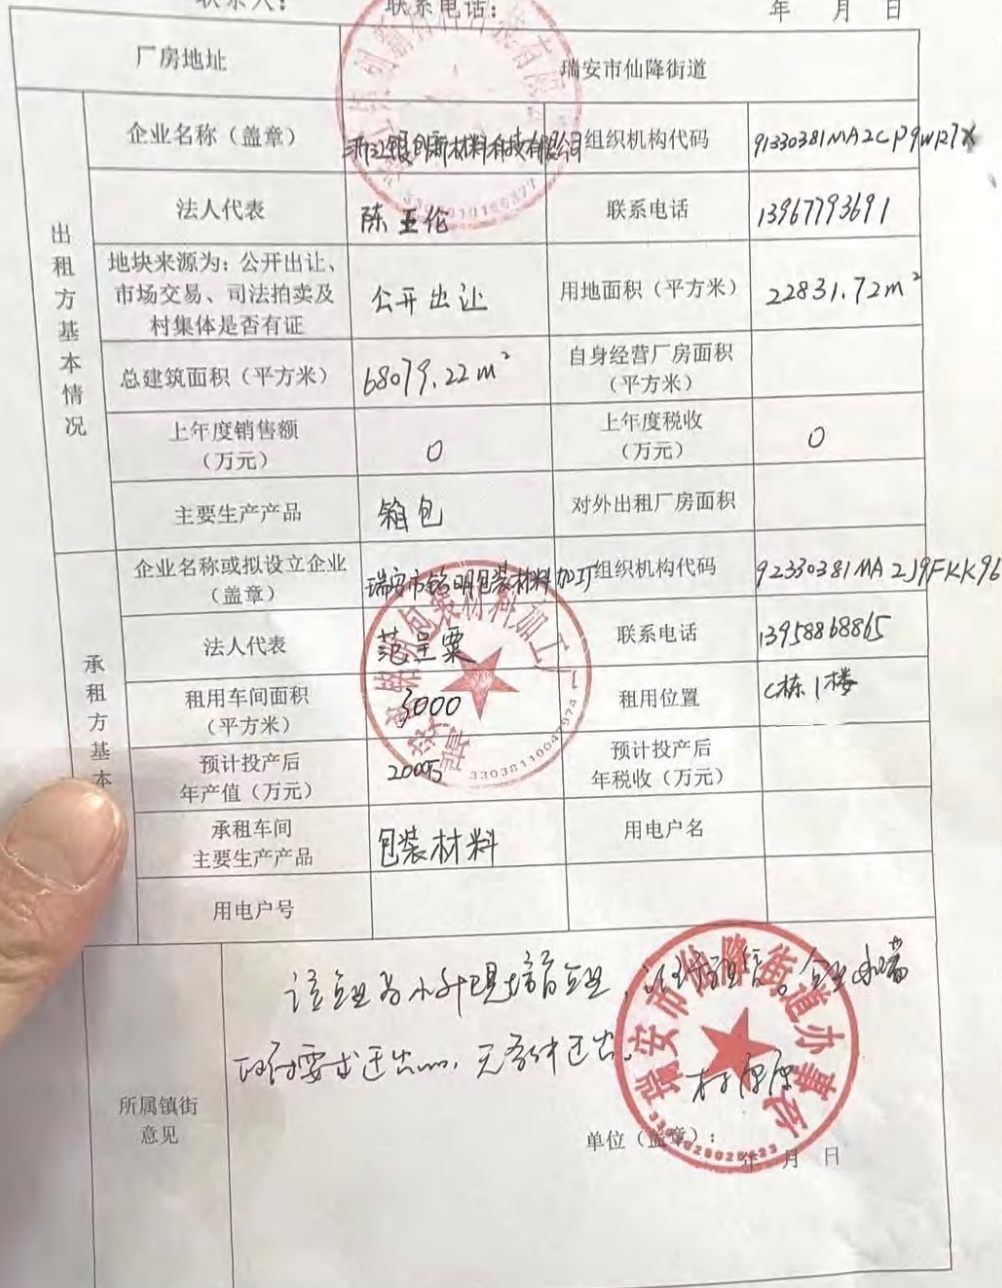 联系人：
联系电话：
年 月 日
厂房地址
瑞安市仙降街道
出租方基本情况
企业名称（盖章）
浙江银创新材料科技有限公司
组织机构代码
法人代表
陈亚伦
联系电话
13967793691
地块来源为：公开出让、
市场交易、司法拍卖及
村集体是否有证
公开出让
用地面积（平方米）
22831.72m²
总建筑面积（平方米）
68079.22m²
自身经营厂房面积
（平方米）
上年度销售额
（万元）
0
上年度税收
（万元）
0
主要生产产品
箱包
对外出租厂房面积
承租方基本
企业名称或拟设立企业
（盖章）
瑞安市铭明包装材料加工厂
组织机构代码
92330381MA2J9FKK96
法人代表
范呈粟
联系电话
13958868865
租用车间面积
（平方米）
3000
租用位置
C栋1楼
预计投产后
年产值（万元）
200万
预计投产后
年税收（万元）
承租车间
主要生产产品
包装材料
用电户名
用电户号
所属镇街
意见
该企业为小升规培育企业，
要求迁出，无条件迁出。
瑞安市仙降街道办事处
单位（盖章）：
年 月 日